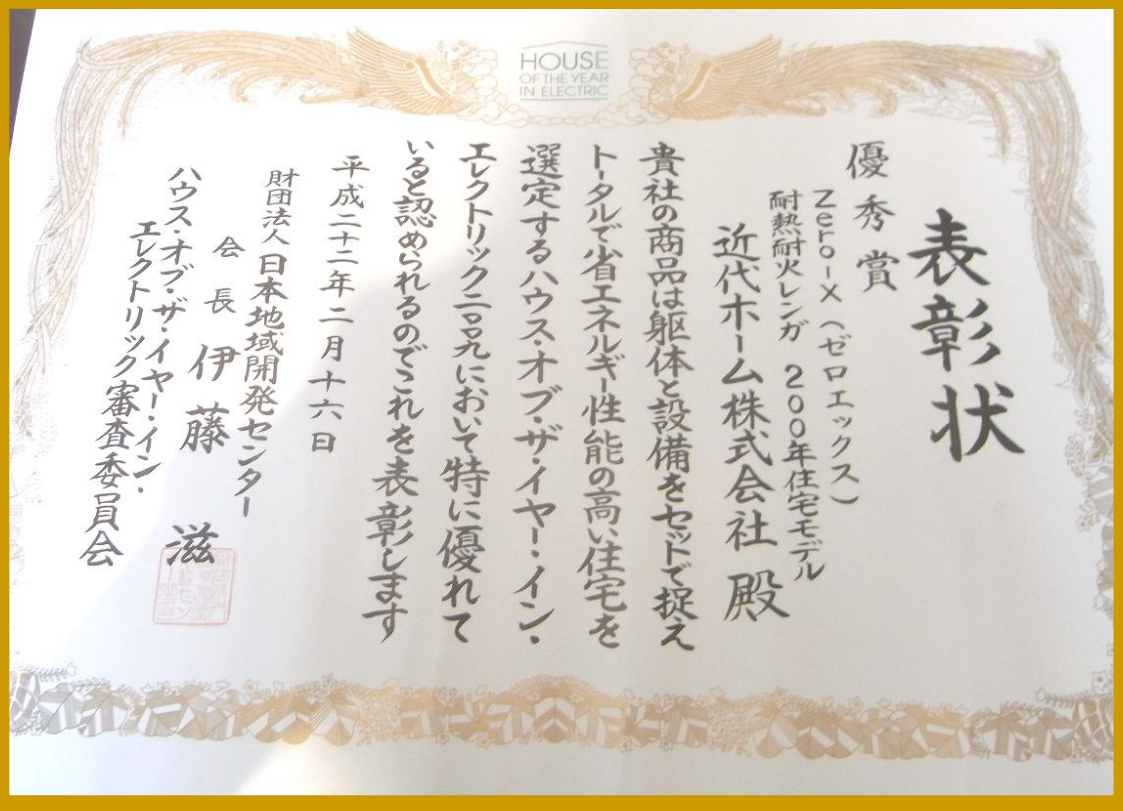 HOUSE
OF THE YEAR
IN ELECTRIC
表彰状
優秀賞
Zero-X(ゼロエックス)
耐熱耐火レンガ 200年住宅モデル
近代ホーム株式会社 殿
貴社の商品は躯体と設備をセットで捉え
トータルで省エネルギー性能の高い住宅を
選定するハウス・オブ・ザ・イヤー・イン・
エレクトリック二〇〇九において特に優れて
いると認められるのでこれを表彰します
平成二十二年二月十六日
財団法人日本地域開発センター
会長 伊藤 滋
ハウス・オブ・ザ・イヤー・イン・
エレクトリック審査委員会